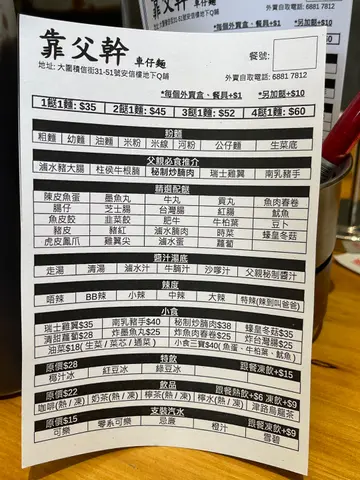 靠父幹 車仔麵
餐號:
地址: 大圍積信街31-51號安信樓地下Q鋪
外賣自取電話: 6881 7812
*每個外賣盒、餐具+$1 *另加餸+$10
1餸1麵: $35 2餸1麵: $45 3餸1麵: $52 4餸1麵: $60
粉麵
粗麵 幼麵 油麵 米粉 米線 河粉 公仔麵 生菜底
父親必食推介
滷水豬大腸 柱侯牛根腩 秘制炒腩肉 瑞士雞翼 南乳豬手
精選配餸
陳皮魚蛋 墨魚丸 牛丸 貢丸 魚肉春卷
腸仔 芝士腸 台灣腸 紅腸 魷魚
魚皮餃 韭菜餃 肥牛 牛柏葉 豆卜
豬皮 豬紅 滷水腩肉 時菜 蠔皇冬菇
虎皮鳳爪 雞翼尖 滷水蛋 蘿蔔
醬汁湯底
走湯 清湯 滷水汁 牛腩汁 沙嗲汁 父親秘制醬汁
辣度
唔辣 BB辣 小辣 中辣 大辣 特辣(辣到叫爸爸)
小食
瑞士雞翼$35 南乳豬手$40 秘制炒腩肉$38 蠔皇冬菇$35
清甜蘿蔔$28 炸墨魚丸$25 炸魚肉春卷$25 炸台灣腸$25
油菜$18(生菜 / 菜芯 / 通菜) 小食三寶$40(魚蛋、牛柏葉、魷魚)
原價$28 特飲 跟餐凍飲+$15
椰汁冰 紅豆冰 綠豆冰
原價$22 飲品 跟餐熱飲+$6 凍飲+$9
咖啡(熱 / 凍) 奶茶(熱 / 凍) 檸茶(熱 / 凍) 檸水(熱 / 凍) 津路烏龍茶
原價$15 支裝汽水 跟餐凍飲+$9
可樂 零系可樂 忌廉 橙汁 雪碧